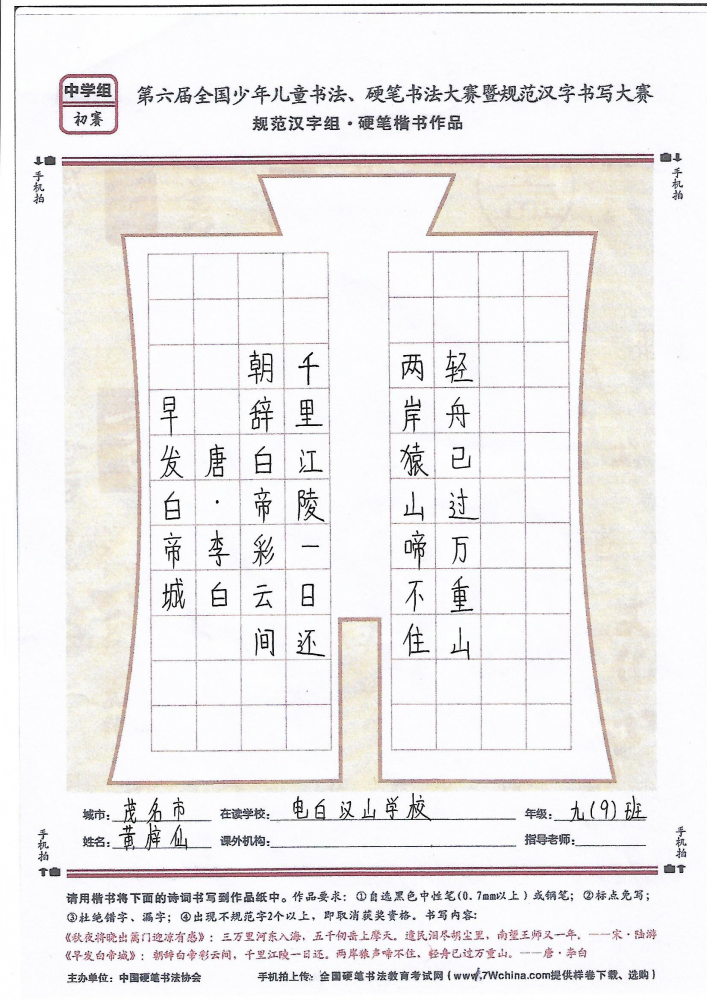 中学组
初赛
第六届全国少年儿童书法、硬笔书法大赛暨规范汉字书写大赛
规范汉字组·硬笔楷书作品
手机拍
手机拍
早发白帝城
唐·李白
朝辞白帝彩云间
千里江陵一日还
两岸猿山啼不住
轻舟已过万重山
城市：茂名市 在读学校：电白汉山学校 年级：九(9)班
姓名：黄梓仙 课外机构： 指导老师：
手机拍
手机拍
请用楷书将下面的诗词书写到作品纸中。作品要求：①自选黑色中性笔(0.7mm以上）或钢笔；②标点免写；
③杜绝错字、漏字；④出现不规范字2个以上，即取消获奖资格。书写内容：
《秋夜将晓出篱门迎凉有感》：三万里河东入海，五千仞岳上摩天。遗民泪尽胡尘里，南望王师又一年。——宋·陆游
《早发白帝城》：朝辞白帝彩云间，千里江陵一日还。两岸猿声啼不住，轻舟已过万重山。——唐·李白
主办单位：中国硬笔书法协会 手机拍上传：全国硬笔书法教育考试网（www.7Wchina.com提供样卷下载、选购）